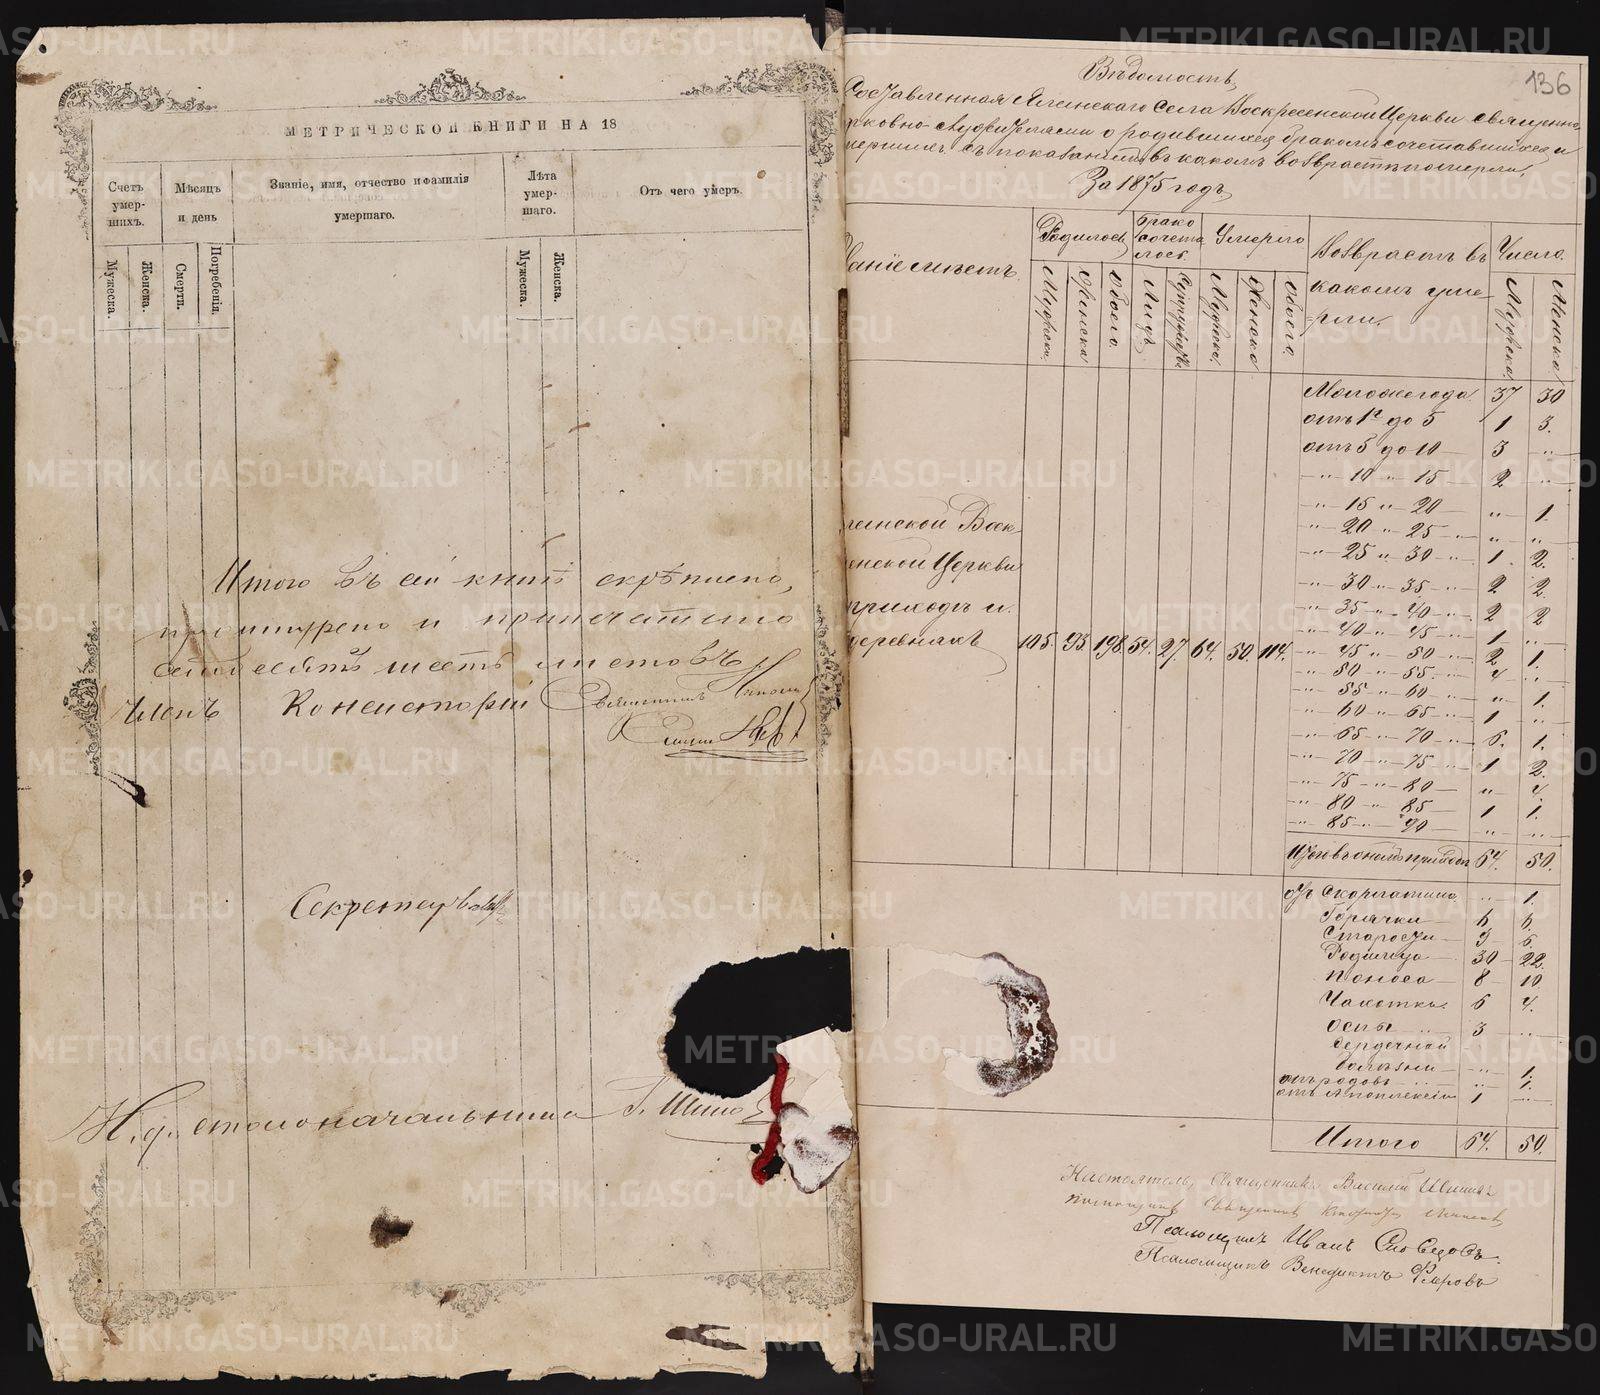 МЕТРИЧЕСКОЙ КНИГИ НА 18
Счетъ умер-шихъ.
Мѣсяцъ и день
Званіе, имя, отчество и фамилія умершаго.
Лѣта умер-шаго.
Отъ чего умеръ.
Мужеска.
Женска.
Смерти.
Погребенія.
Мужеска.
Женска.
Итого въ сей книгѣ скрѣплено,
и припечатано
семдесятъ шесть листовъ
Членъ Консисторіи Священникъ
Секретарь
И. д. столоначальника
136
Вѣдомость,
Составленная села Воскресенской Церкви священно
церковно-служителями о родившихся бракомъ сочетавшихся и
умершихъ съ показаніемъ въ какомъ возврастѣ померли,
За 1875 годъ,
Званіе мѣстъ.
Родилось
Брако сочета лось.
Умерло
Возврастъ въ какомъ уме-рли.
Число.
Мужеска.
Женска
Обоего.
Лицъ.
Супружествъ
Мужеска.
Женска
Обоего.
Мужеска
Женска
Моложе года 37 30
отъ 1г до 5 1 3.
отъ 5 до 10 3 "
" 10 " 15. 2 "
" 15 " 20 " 1.
" 20 " 25 " "
" 25 " 30 1. 2.
" 30 " 35 2 2.
" 35 " 40 2 2
" 40 " 45 1 "
" 45 " 50 2 1.
" 50 " 55. 4 "
" 55 " 60 " 1.
" 60 " 65 1 "
" 65 " 70 6. 1.
" 70 " 75 1 2.
" 75 " 80 " 4.
" 80 " 85 1 1.
" 85 " 90 " "
Воск-
Церкви
приходъ и
деревняхъ 105. 93. 198. 54. 27. 64. 50. 114.
приходѣ 64. 50.
отъ Скорлатина " 1.
Горячки 6 6.
Старости 9 6.
Родимца 30 22.
Поноса 8 10
Чахотки 6 4.
Оспы 3 "
Сердечной
болѣзни " 1.
отъ родовъ " 1.
отъ Апоплексіи 1 "
Итого 64. 50.
Настоятель, Священникъ Василій
Священникъ
Псаломщикъ Иванъ Словцовъ.
Псаломщикъ Венедиктъ Флеровъ
METRIKI.GASO-URAL.RU